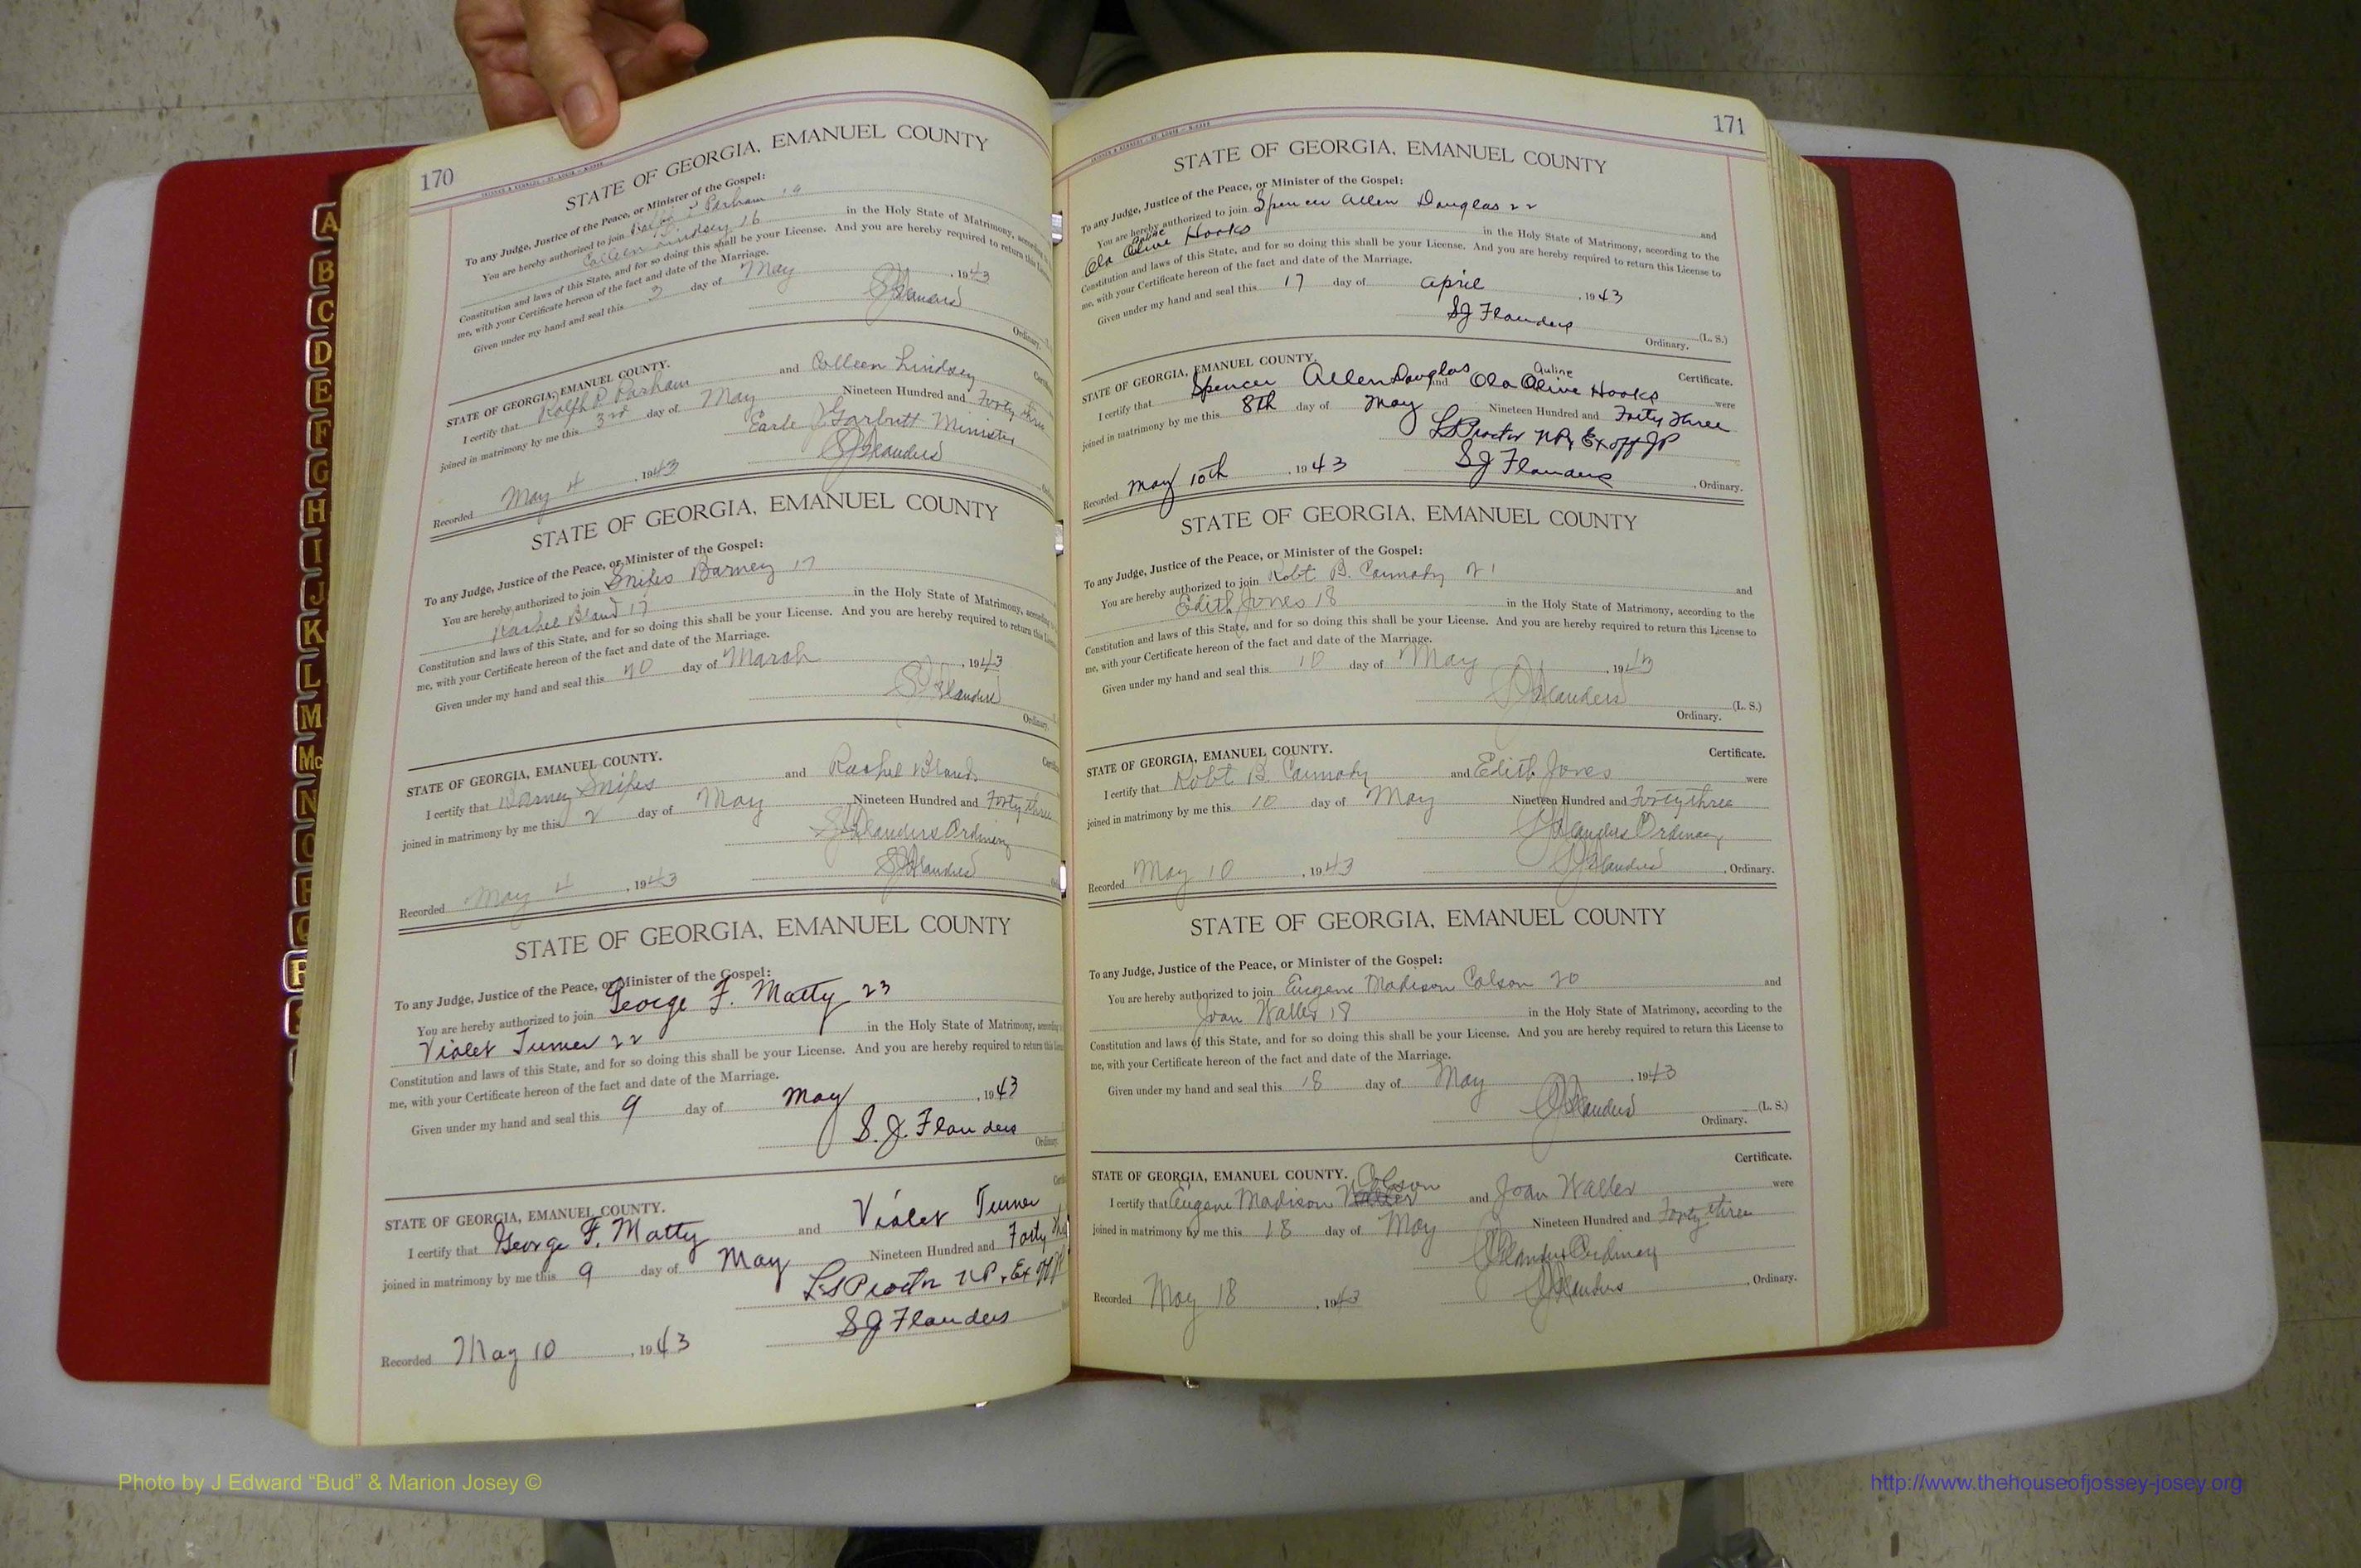 170
STATE OF GEORGIA, EMANUEL COUNTY
To any Judge, Justice of the Peace, or Minister of the Gospel:
You are hereby authorized to join Ralph P Parham 19
Colleen Lindsey 16 in the Holy State of Matrimony, according
Constitution and laws of this State, and for so doing this shall be your License. And you are hereby required to return this License
me, with your Certificate hereon of the fact and date of the Marriage.
Given under my hand and seal this 3 day of May , 1943
SJ Flanders
Ordinary.
STATE OF GEORGIA, EMANUEL COUNTY.
I certify that Ralph P Parham and Colleen Lindsey
joined in matrimony by me this 3rd day of May Nineteen Hundred and Forty three
Earle J Garbutt Minister
Recorded May 4 , 1943 SJ Flanders
STATE OF GEORGIA, EMANUEL COUNTY
To any Judge, Justice of the Peace, or Minister of the Gospel:
You are hereby authorized to join Snipes Barney 17
Rachel Bland 17 in the Holy State of Matrimony, according
Constitution and laws of this State, and for so doing this shall be your License. And you are hereby required to return this License
me, with your Certificate hereon of the fact and date of the Marriage.
Given under my hand and seal this 20 day of March , 1943
SJ Flanders
Ordinary.
STATE OF GEORGIA, EMANUEL COUNTY.
I certify that Barney Snipes and Rachel Bland
joined in matrimony by me this 2 day of May Nineteen Hundred and Forty three
SJ Flanders Ordinary
Recorded May 4 , 1943 SJ Flanders
STATE OF GEORGIA, EMANUEL COUNTY
To any Judge, Justice of the Peace, or Minister of the Gospel:
You are hereby authorized to join George F. Matty 23
Violet Turner 22 in the Holy State of Matrimony, according
Constitution and laws of this State, and for so doing this shall be your License. And you are hereby required to return this
me, with your Certificate hereon of the fact and date of the Marriage.
Given under my hand and seal this 9 day of May , 1943
S. J. Flanders
Ordinary.
STATE OF GEORGIA, EMANUEL COUNTY.
I certify that George F. Matty and Violet Turner
joined in matrimony by me this 9 day of May Nineteen Hundred and Forty
LS Proctor NP & Ex off
Recorded May 10 , 1943 SJ Flanders
171
STATE OF GEORGIA, EMANUEL COUNTY
To any Judge, Justice of the Peace, or Minister of the Gospel:
You are hereby authorized to join Spencer Allen Douglas 22 and
Auline
Ola Olive Hooks in the Holy State of Matrimony, according to the
Constitution and laws of this State, and for so doing this shall be your License. And you are hereby required to return this License to
me, with your Certificate hereon of the fact and date of the Marriage.
Given under my hand and seal this 17 day of April , 1943
SJ Flanders (L. S.)
Ordinary.
STATE OF GEORGIA, EMANUEL COUNTY. Certificate.
Auline
I certify that Spencer Allen Douglas and Ola Olive Hooks were
joined in matrimony by me this 8th day of May Nineteen Hundred and Forty Three
LS Proctor NP & Ex off JP
Recorded May 10th , 1943 SJ Flanders , Ordinary.
STATE OF GEORGIA, EMANUEL COUNTY
To any Judge, Justice of the Peace, or Minister of the Gospel:
You are hereby authorized to join Robt B. Carmody 21 and
Edith Jones 18 in the Holy State of Matrimony, according to the
Constitution and laws of this State, and for so doing this shall be your License. And you are hereby required to return this License to
me, with your Certificate hereon of the fact and date of the Marriage.
Given under my hand and seal this 10 day of May , 1943
SJ Flanders (L. S.)
Ordinary.
STATE OF GEORGIA, EMANUEL COUNTY. Certificate.
I certify that Robt B. Carmody and Edith Jones were
joined in matrimony by me this 10 day of May Nineteen Hundred and Forty three
SJ Flanders Ordinary
Recorded May 10 , 1943 SJ Flanders , Ordinary.
STATE OF GEORGIA, EMANUEL COUNTY
To any Judge, Justice of the Peace, or Minister of the Gospel:
You are hereby authorized to join Eugene Madison Colson 20 and
Joan Waller 18 in the Holy State of Matrimony, according to the
Constitution and laws of this State, and for so doing this shall be your License. And you are hereby required to return this License to
me, with your Certificate hereon of the fact and date of the Marriage.
Given under my hand and seal this 18 day of May , 1943
SJ Flanders (L. S.)
Ordinary.
Certificate.
STATE OF GEORGIA, EMANUEL COUNTY. Colson
I certify that Eugene Madison and Joan Waller were
joined in matrimony by me this 18 day of May Nineteen Hundred and Forty three
SJ Flanders Ordinary
Recorded May 18 , 1943 SJ Flanders , Ordinary.
A
B
C
D
E
F
G
H
I
J
K
L
M
Mc
N
O
P
Q
R
Photo by J Edward “Bud” & Marion Josey ©
http://www.thehouseofjossey-josey.org